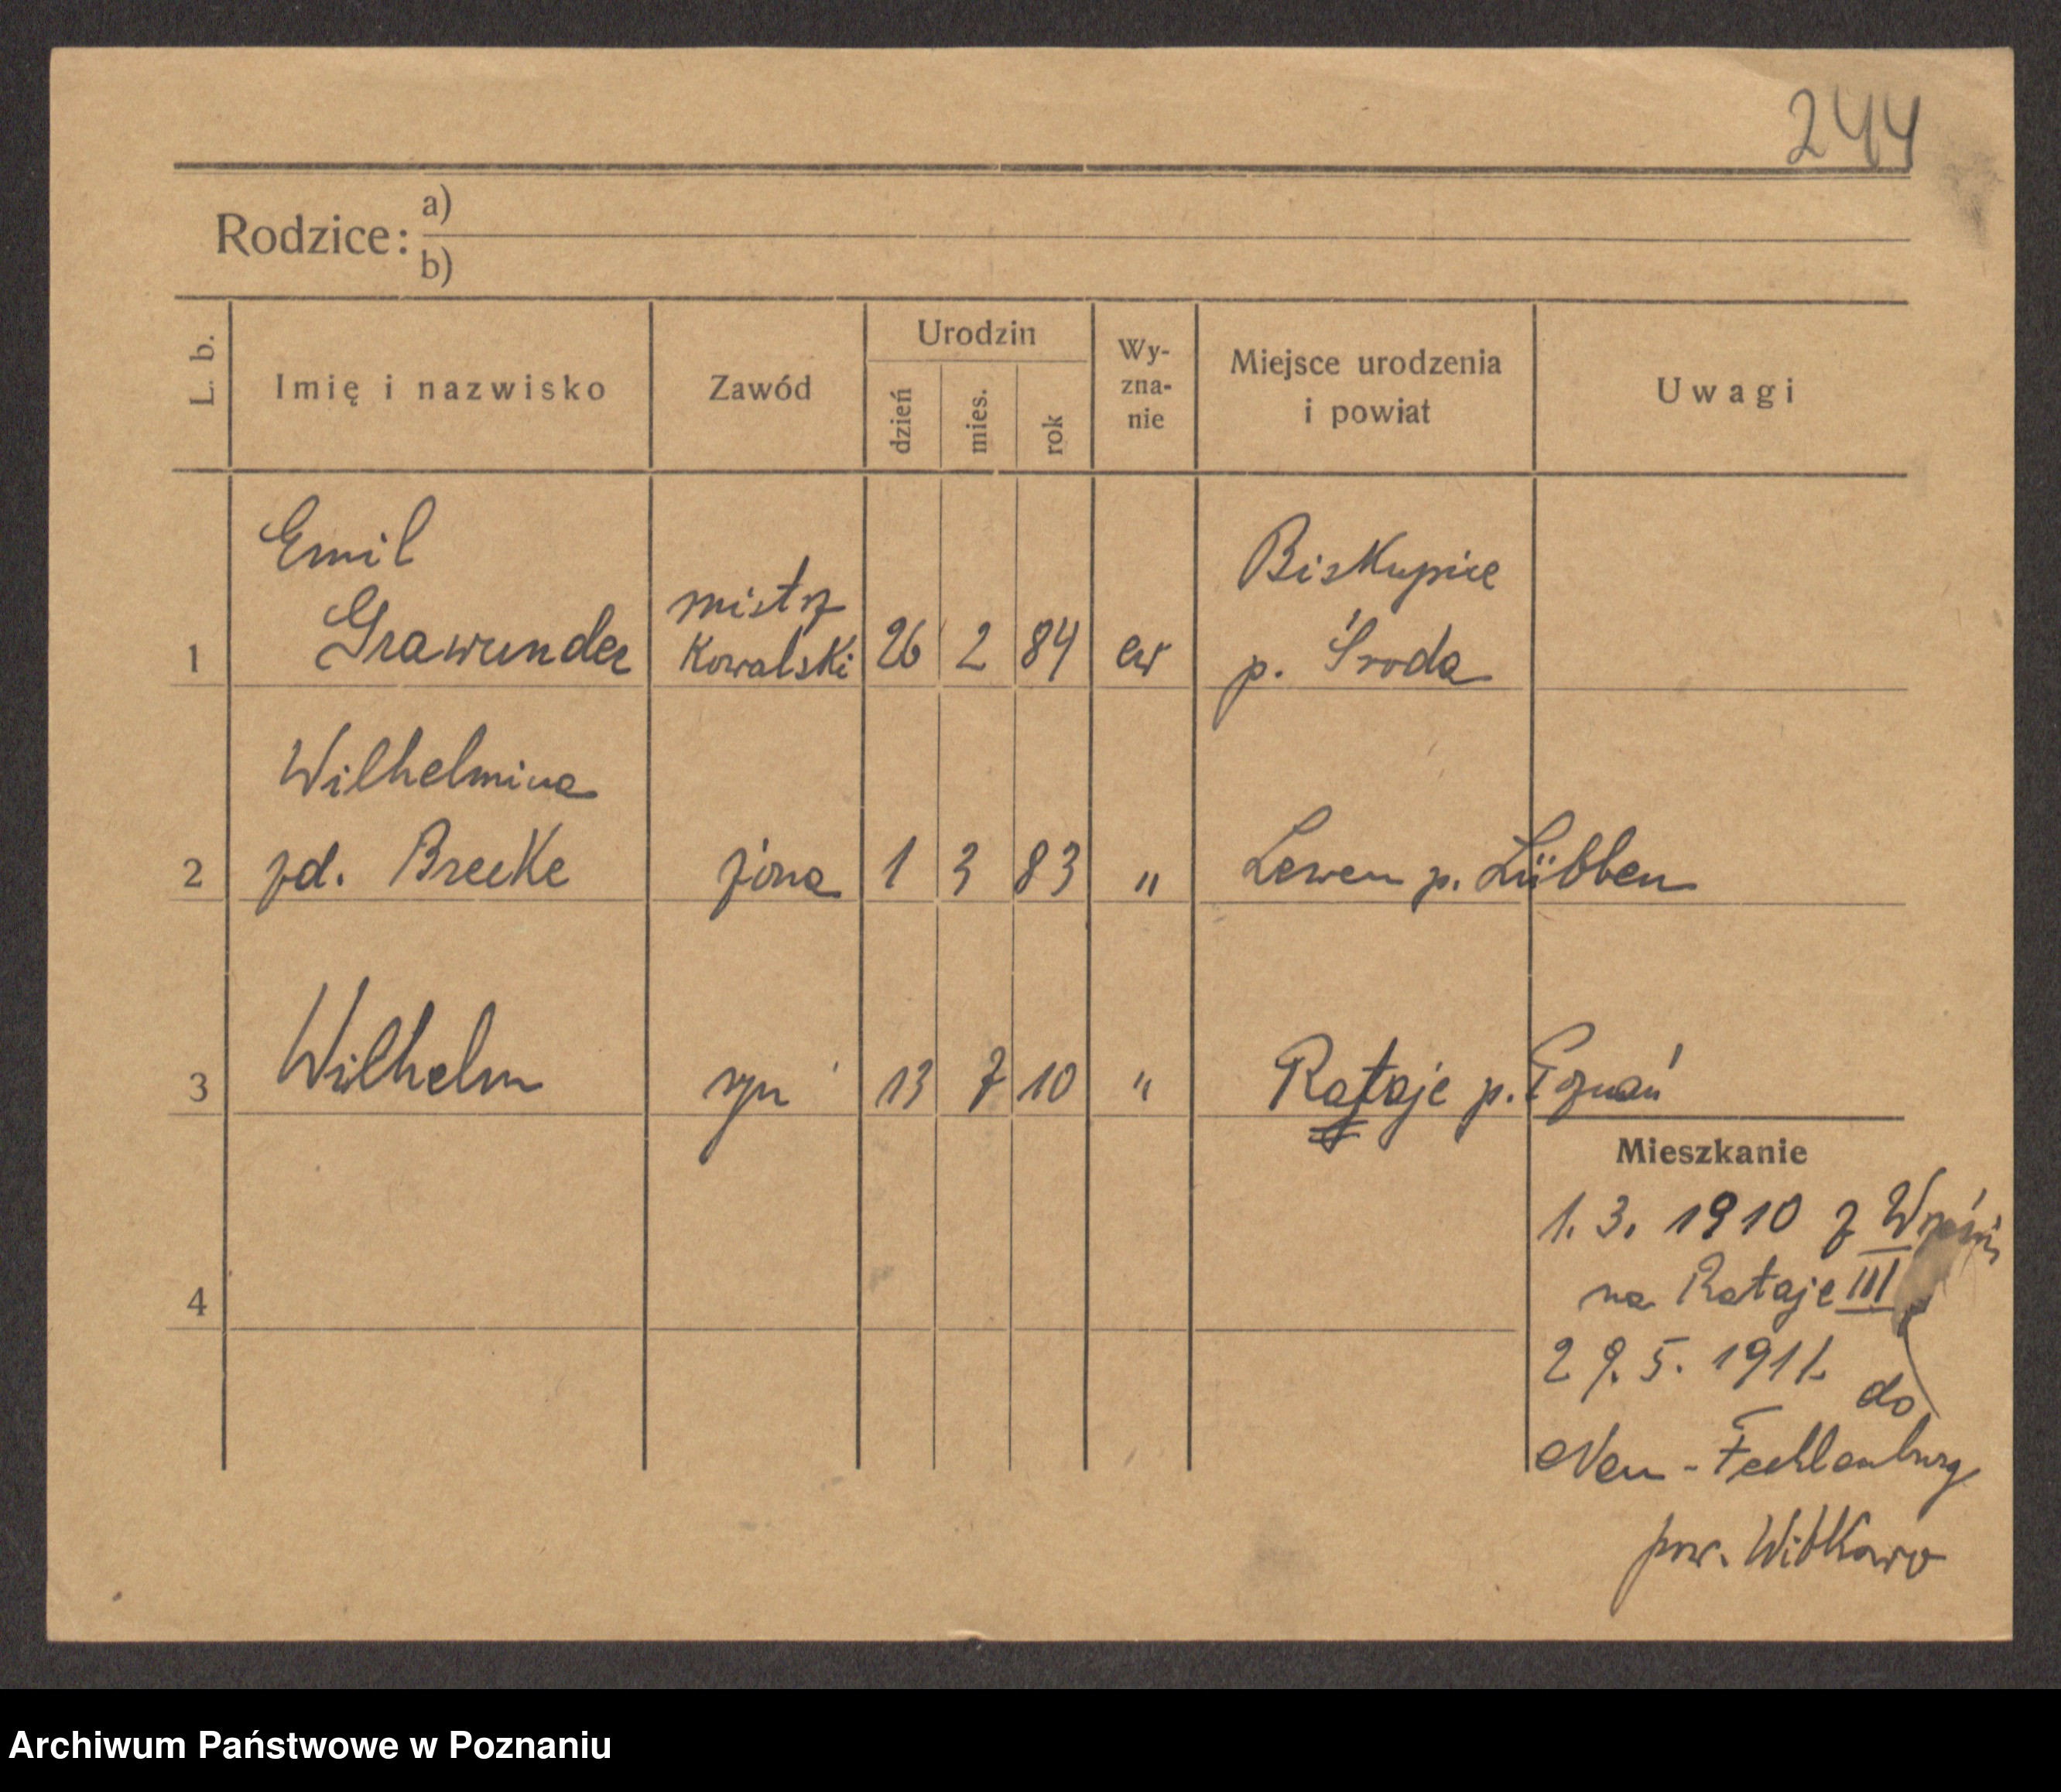 244
Rodzice: a)
b)
L. b.
Imię i nazwisko
Zawód
Urodzin
dzień
mies.
rok
Wy-
zna-
nie
Miejsce urodzenia
i powiat
Uwagi
Emil
Grawunder
mistrz
Kowalski
1
26 2 84 ew
Biskupice
p. Środa
Wilhelmina
2 zd. Breeke żona 1 3 83 " Lewen p. Lübben
3 Wilhelm syn 13 7 10 " Rataje p. Poznań
4
Mieszkanie
1. 3. 1910 z
na Rataje III
29. 5. 1911. do
Neu-Tecklenburg
pow. Witkowo
Archiwum Państwowe w Poznaniu